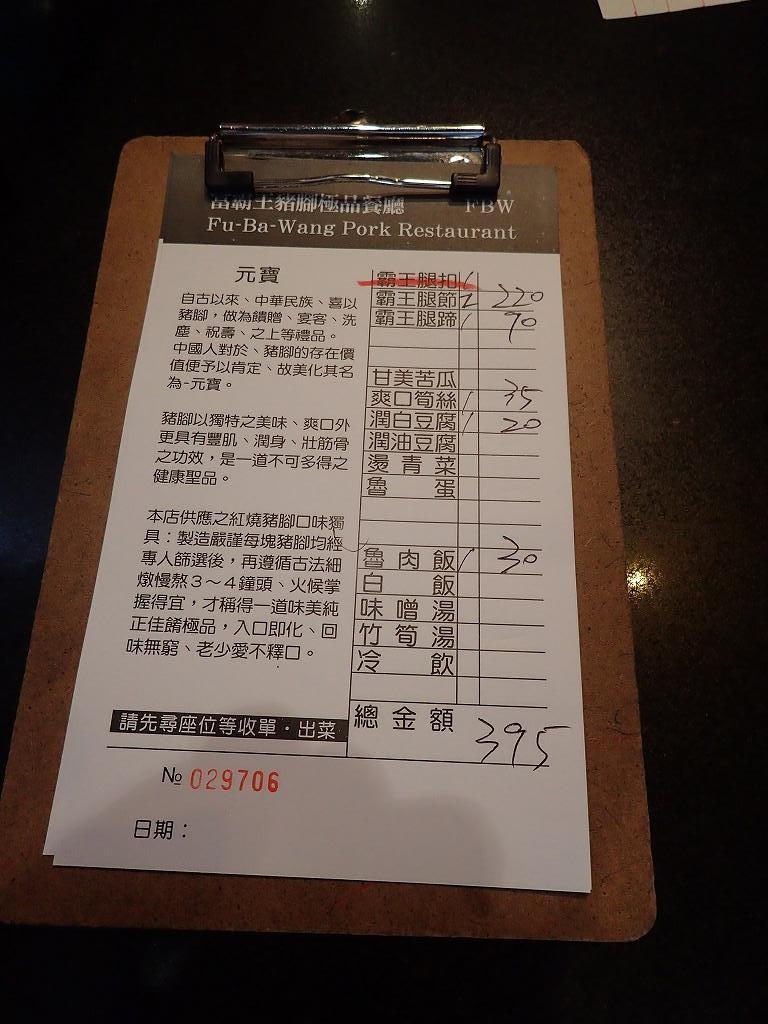 富霸王豬腳極品餐廳 FBW
Fu-Ba-Wang Pork Restaurant
元寶
自古以來、中華民族、喜以
豬腳，做為饋贈、宴客、洗
塵、祝壽、之上等禮品。
中國人對於、豬腳的存在價
值便予以肯定、故美化其名
為-元寶。
豬腳以獨特之美味、爽口外
更具有豐肌、潤身、壯筋骨
之功效，是一道不可多得之
健康聖品。
本店供應之紅燒豬腳口味獨
具：製造嚴謹每塊豬腳均經
專人篩選後，再遵循古法細
燉慢熬３～４鐘頭、火候掌
握得宜，才稱得一道味美純
正佳餚極品，入口即化、回
味無窮、老少愛不釋口。
請先尋座位等收單・出菜
霸王腿扣
霸王腿節 220
霸王腿蹄 90
甘美苦瓜
爽口筍絲 35
潤白豆腐 20
潤油豆腐
燙青菜
魯蛋
魯肉飯 30
白飯
味噌湯
竹筍湯
冷飲
總金額 395
№ 029706
日期：